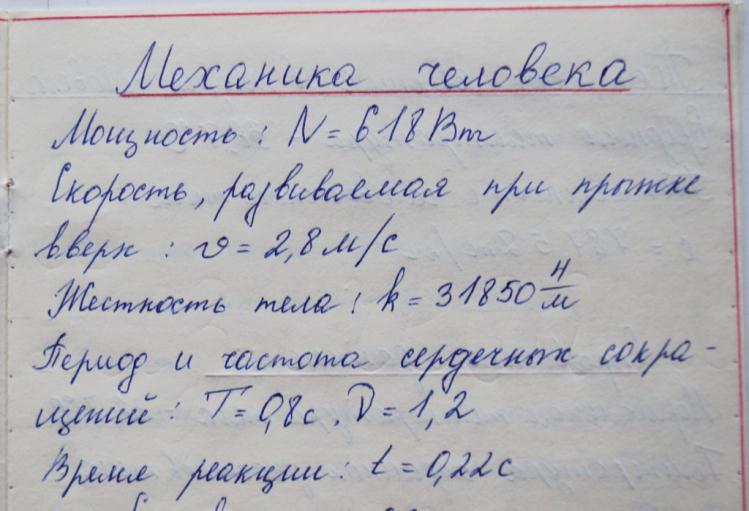 Механика человека
Мощность: N = 618 Вт
Скорость, развиваемая при прыжке
вверх: υ = 2,8 м/с
Жесткость тела: k = 31850 Н/м
Период и частота сердечных сокра-
щений: T = 0,8 с. ν = 1,2
Время реакции: t = 0,22 с